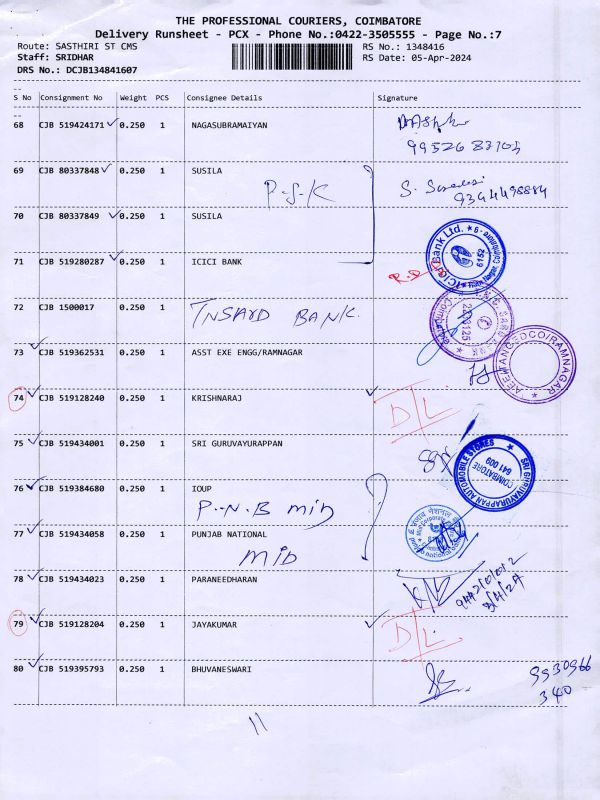 THE PROFESSIONAL COURIERS, COIMBATORE
Delivery Runsheet - PCX - Phone No.:0422-3505555 - Page No.:7
Route: SASTHIRI ST CMS RS No.: 1348416
Staff: SRIDHAR RS Date: 05-Apr-2024
DRS No.: DCJB134841607
S No Consignment No Weight PCS Consignee Details Signature
68 CJB 519424171 0.250 1 NAGASUBRAMAIYAN
69 CJB 80337848 0.250 1 SUSILA
P-S-K
9344498884
70 CJB 80337849 0.250 1 SUSILA
71 CJB 519280287 0.250 1 ICICI BANK
ICICI Bank Ltd. 6152
72 CJB 1500017 0.250 1 TNSARD BANK
73 CJB 519362531 0.250 1 ASST EXE ENGG/RAMNAGAR
AEE/TANGEDCO/RAMNAGAR
74 CJB 519128240 0.250 1 KRISHNARAJ
D/L
75 CJB 519434001 0.250 1 SRI GURUVAYURAPPAN
SRI GURUVAYURAPPAN AUTOMOBILE STORES COIMBATORE 641 009
76 CJB 519384680 0.250 1 IOUP
P-N-B MID
77 CJB 519434058 0.250 1 PUNJAB NATIONAL
MID
78 CJB 519434023 0.250 1 PARANEEDHARAN
79 CJB 519128204 0.250 1 JAYAKUMAR
D/L
80 CJB 519395793 0.250 1 BHUVANESWARI
9930966
340
11